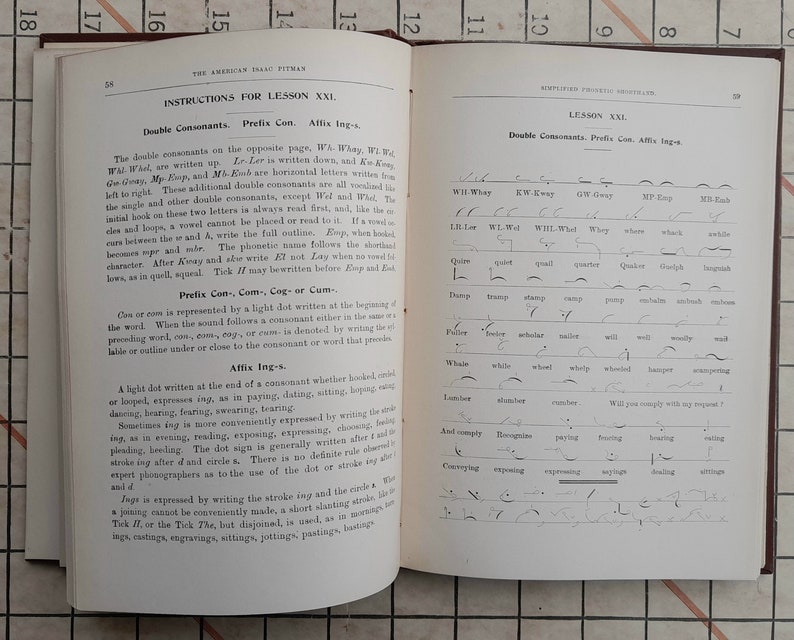 18 17 16 15 14 13 12 11 10 9 8 7
58
THE AMERICAN ISAAC PITMAN
INSTRUCTIONS FOR LESSON XXI.
Double Consonants. Prefix Con. Affix Ing-s.
The double consonants on the opposite page, Wh-Whay, Wl-Wel,
Whl-Whel, are written up. Lr-Ler is written down, and Kw-Kway,
Gw-Gway, Mp-Emp, and Mb-Emb are horizontal letters written from
left to right. These additional double consonants are all vocalized like
the single and other double consonants, except Wel and Whel. The
initial hook on these two letters is always read first, and, like the cir-
cles and loops, a vowel cannot be placed or read to it. If a vowel oc-
curs between the w and h, write the full outline. Emp, when hooked,
becomes mpr and mbr. The phonetic name follows the shorthand
character. After Kway and skw write El not Lay when no vowel fol-
lows, as in quell, squeal. Tick H may bewritten before Emp and Emb.
Prefix Con-, Com-, Cog- or Cum-.
Con or com is represented by a light dot written at the beginning of
the word. When the sound follows a consonant either in the same or a
preceding word, con-, com-, cog-, or cum- is denoted by writing the syl-
lable or outline under or close to the consonant or word that precedes.
Affix Ing-s.
A light dot written at the end of a consonant whether hooked, circled,
or looped, expresses ing, as in paying, dating, sitting, hoping, eating,
dancing, hearing, fearing, swearing, tearing.
Sometimes ing is more conveniently expressed by writing the stroke
ing, as in evening, reading, exposing, expressing, choosing, feeding,
pleading, heeding. The dot sign is generally written after t and the
stroke ing after d and circle s. There is no definite rule observed by
expert phonographers as to the use of the dot or stroke ing after t
and d.
Ings is expressed by writing the stroke ing and the circle s. When
a joining cannot be conveniently made, a short slanting stroke, like the
Tick H, or the Tick The, but disjoined, is used, as in mornings, turn-
ings, castings, engravings, sittings, jottings, pastings, bastings.
SIMPLIFIED PHONETIC SHORTHAND.
59
LESSON XXI.
Double Consonants. Prefix Con. Affix Ing-s.
WH-Whay KW-Kway GW-Gway MP-Emp MB-Emb
LR-Ler WL-Wel WHL-Whel Whey where whack awhile
Quire quiet quail quarter Quaker Guelph languish
Damp tramp stamp camp pump embalm ambush emboss
Fuller feeler scholar nailer will well woolly wail
Whale while wheel whelp wheeled hamper scampering
Lumber slumber cumber Will you comply with my request?
And comply Recognize paying fencing hearing eating
Conveying exposing expressing sayings dealing sittings